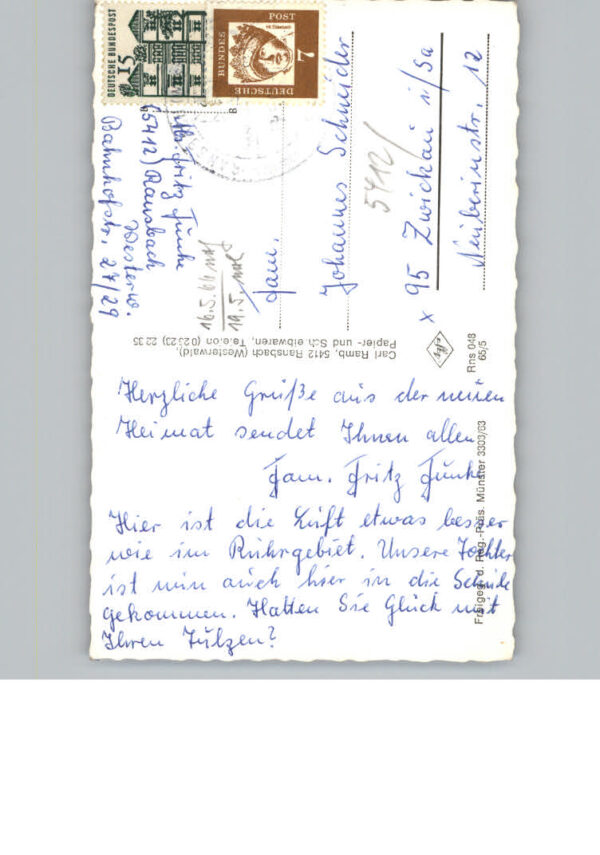 Herzliche Grüße aus der neuen
Heimat sendet Ihnen allen
Fam. Fritz Funke
Hier ist die Luft etwas besser
wie im Ruhrgebiet. Unsere Tochter
ist nun auch hier in die Schule
gekommen. Hatten Sie Glück mit
Ihren Tulpen?
Fritz Funke
(5412) Ransbach
Westerw.
Bahnhofstr. 27/29
16.5.66
19.5.
Fam.
Johannes Schneider
5412/
x 95 Zwickau i/Sa
str. 12
Carl Ramb, 5412 Ransbach (Westerwald),
Papier- und Schreibwaren, Telefon (02623) 2235
Rns 048
65/5
Freigeg. d. Reg.-Präs. Münster 3303/63
DEUTSCHE BUNDESPOST
15
DEUTSCHE
BUNDES
POST
7